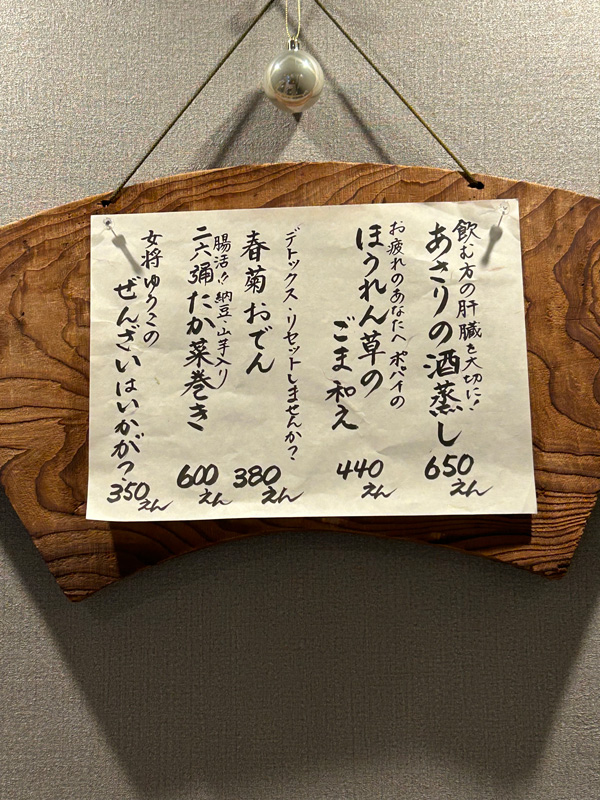 飲む方の肝臓を大切に!!
あさりの酒蒸し
650えん
お疲れのあなたへ ポパイの
ほうれん草の
ごま和え
440えん
デトックス・リセットしませんか?
春菊おでん
380えん
腸活!! 納豆・山芋入り
二六彌たか菜巻き
600えん
女将ゆうこの
ぜんざいはいかが?
350えん